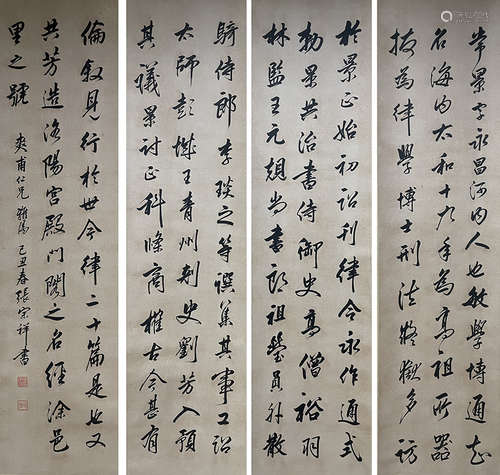 常景字永昌河内人也敏學博通知
名海内太和十九年為高祖所器
拔為律學博士刑法疑獄多訪
於景正始初詔刊律令永作通式
勅景共治書侍御史高僧裕羽
林監王元龜尚書郎祖瑩員外散
騎侍郎李琰之等撰集其事又詔
太師彭城王青州刺史劉芳入預
其議景討正科條商榷古今甚有
倫叙見行於世今律二十篇是也又
共芳造洛陽宮殿門閣之名經途邑
里之號
爽甫仁兄雅屬 己丑春張宗祥書